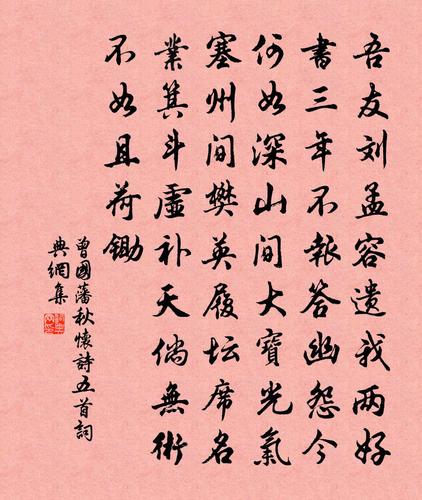 吾友刘孟容遗我两好
书三年不报答幽怨今
何如深山间大寶光氣
塞州间樊英履坛席名
業箕斗虛补天倘無術
不如且荷锄
曾國藩秋懷詩五首詞
典網集